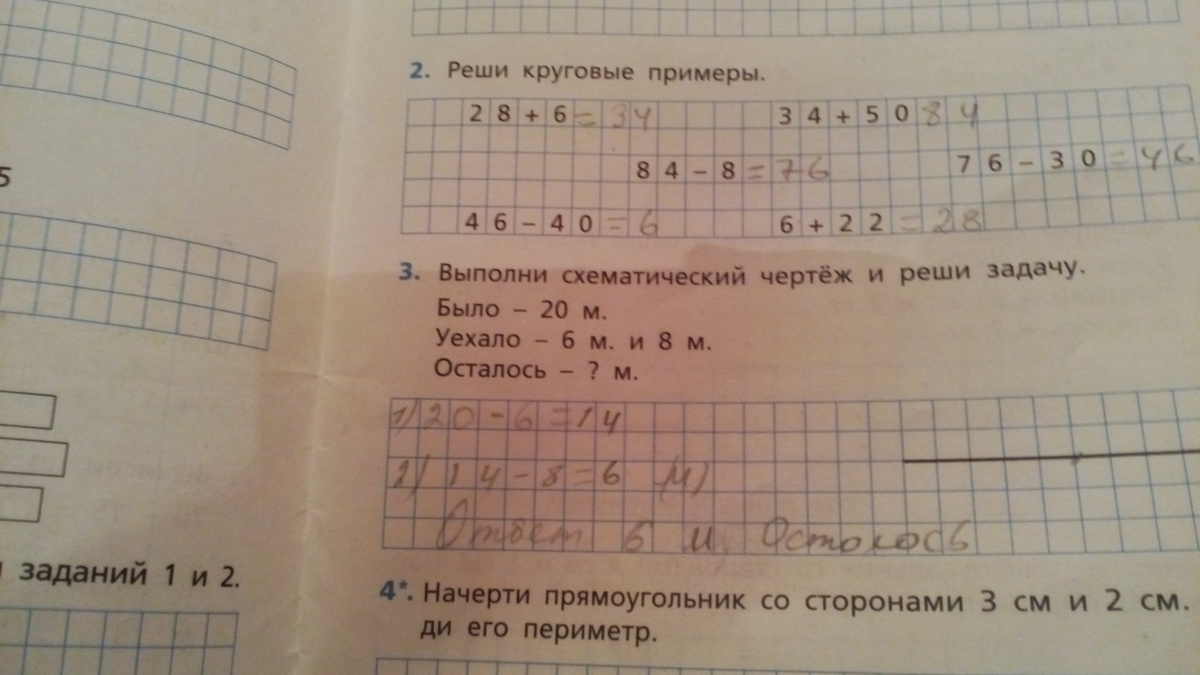 5
заданий 1 и 2.
2. Реши круговые примеры.
28+6=34 34+50 84
84-8=76 76-30=46
46-40=6 6+22=28
3. Выполни схематический чертёж и реши задачу.
Было – 20 м.
Уехало – 6 м. и 8 м.
Осталось – ? м.
1) 20-6=14
2) 14-8=6 (м)
Ответ 6 м. Осталось
4*. Начерти прямоугольник со сторонами 3 см и 2 см.
ди его периметр.